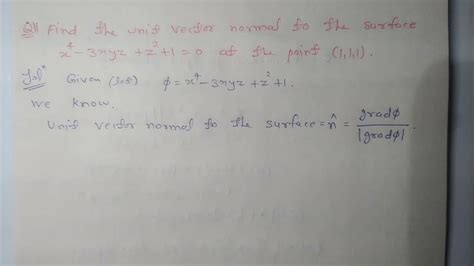 Q1 Find the unit vector normal to the surface
x⁴ - 3xyz + z² + 1 = 0 at the point (1,1,1).
Solⁿ Given (let) ϕ = x⁴ - 3xyz + z² + 1.
we know.
Unit vector normal to the surface = n̂ = gradϕ / |gradϕ|.